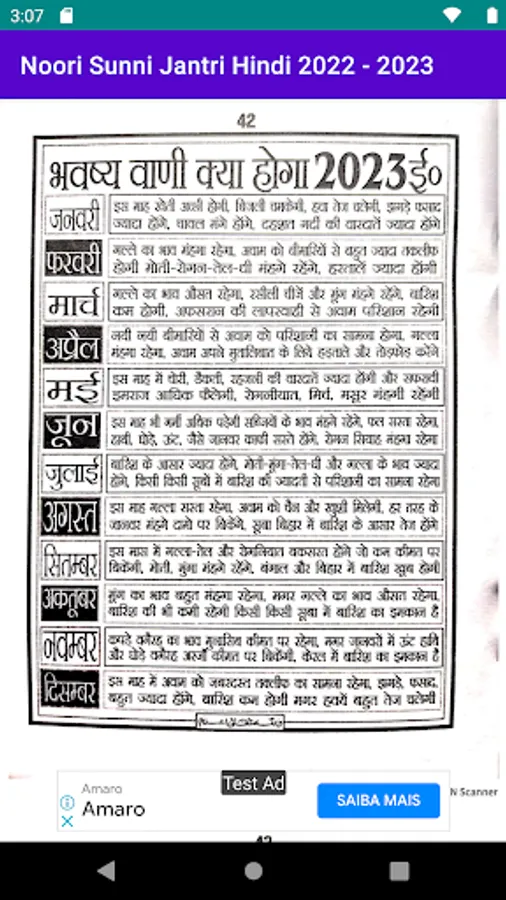 3:07
Noori Sunni Jantri Hindi 2022 - 2023
42
भवष्य वाणी क्या होगा 2023ई०
जनवरी
इस माह खेती अच्छी होगी, बिजली चमकेगी, हवा तेज चलेगी, झगड़े फसाद
ज्यादा होंगे, चावल मंगे होंगे, दहशत गर्दी की वारदातें ज्यादा होंगे
फरवरी
गल्ले का भाव मंहगा रहेगा, अवाम को बीमारियों से बहुत ज्यादा तकलीफ
होगी मोती-रोगन-तेल-घी मंहगे रहेंगे, हरतालें ज्यादा होंगी
मार्च
गल्ले का भाव औसत रहेगा, रसीली चीजें और मुंग मंहगे रहेंगे, बारिश
कम होगी, अफसरान की लापरवाही से अवाम परिशान रहेगी
अप्रैल
नयी नयी बीमारियों से अवाम को परिशानी का सामना होगा, गल्ला
मंहगा रहेगा, अवाम अपने मुतालिबात के लिये हड़ताले और तोड़फोड़ करेंगे
मई
इस माह में चोरी, डैकती, रहजनी की वारदातें ज्यादा होंगी और सफरावी
इमराज आधिक फैलेंगी, रोगनीयात, मिर्च, मसूर मंहगी रहेंगी
जून
इस माह भी गर्मी अधिक पड़ेगी सब्जियों के भाव मंहगे रहेंगे, फल सस्ता रहेगा,
हाथी, घोड़े, ऊंट, जैसे जानवर काफी सस्ते होंगे, रोगन सियाह मंहगा रहेगा
जुलाई
बारिश के आसार ज्यादा होंगे, मोती-मुंगा-तेल-घी और गल्ला के भाव ज्यादा
होंगे, किसी किसी सूबों में बारिश की ज्यादती से परिशानी का सामना रहेगा
अगस्त
इस माह गल्ला सस्ता रहेगा, अवाम को चैन और खुशी मिलेगी, हर तरह के
जानवर मंहगे दामो पर बिकेंगे, सूबा बिहार में बारिश के आसार तेज होंगे
सितम्बर
इस मास में गल्ला-तेल और रोगनियात बकसरत होंगे जो कम कीमत पर
बिकेंगी, मोती, मुंगा मंहगे रहेंगे, बंगाल और बिहार में बारिश खूब होगी
अकतूबर
मुंग का भाव बहुत मंहगा रहेगा, मगर गल्ले का भाव औसत रहेगा,
बारिश की भी कमी रहेगी किसी किसी सूबा में बारिश का इमकान है
नवम्बर
कपड़े वगैरह का भाव मुनासिब कीमत पर रहेगा, मगर जानवरों में ऊंट हाथि
और घोड़े वगैरह अरजाँ कीमत पर बिकेंगी, केरल में बारिश का इमकान है
दिसम्बर
इस माह में अवाम को जबरदस्त तकलीफ का सामना रहेगा, झगड़े, फसाद,
बहुत ज्यादा होंगे, बारिश कम होगी मगर हवायें बहुत तेज चलेगी
N Scanner
Amaro
Amaro
Test Ad
SAIBA MAIS